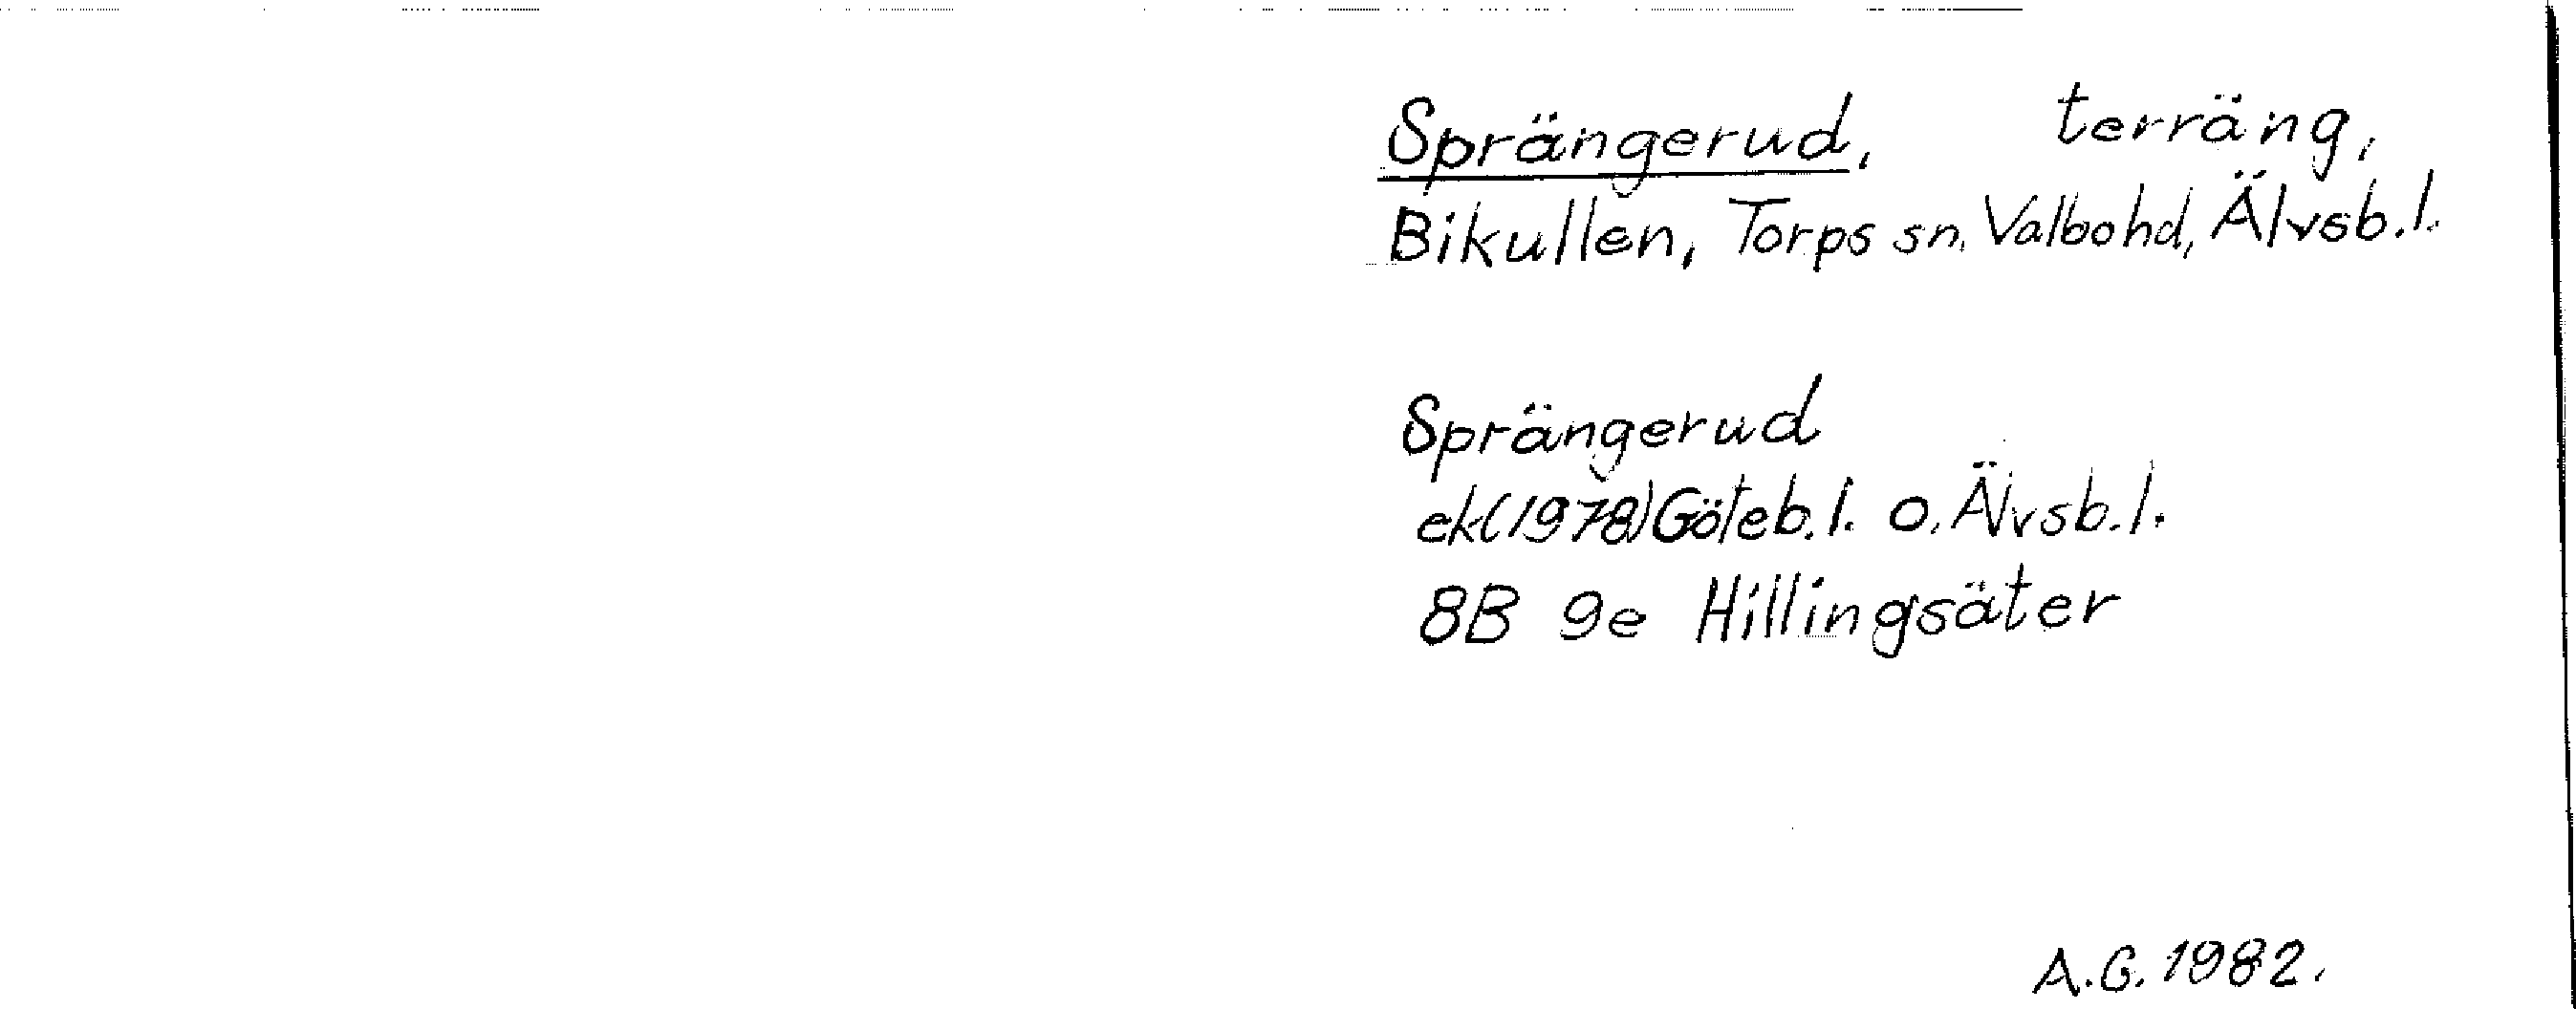 Sprängerud, terräng,
Bikullen, Torps sn. Valbo hd, Älvsb. l.
Sprängerud
ek(1978) Göteb. l. o. Älvsb. l.
8B 9e Hillingsäter
A.G. 1982.